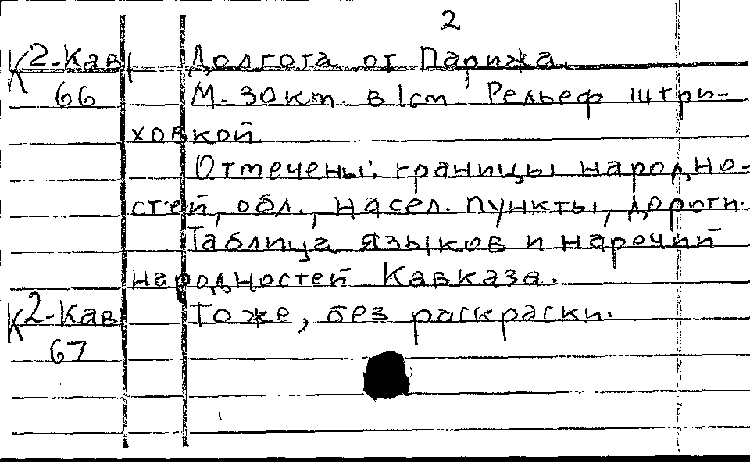 2
К2-Кав Долгота от Парижа.
66 М. 30 km. в 1 cm Рельеф штри-
ховкой
Отмечены: границы народно-
стей, обл., насел. пункты, дороги.
Таблица языков и наречий
народностей Кавказа.
К2-Кав То же, без раскраски.
67